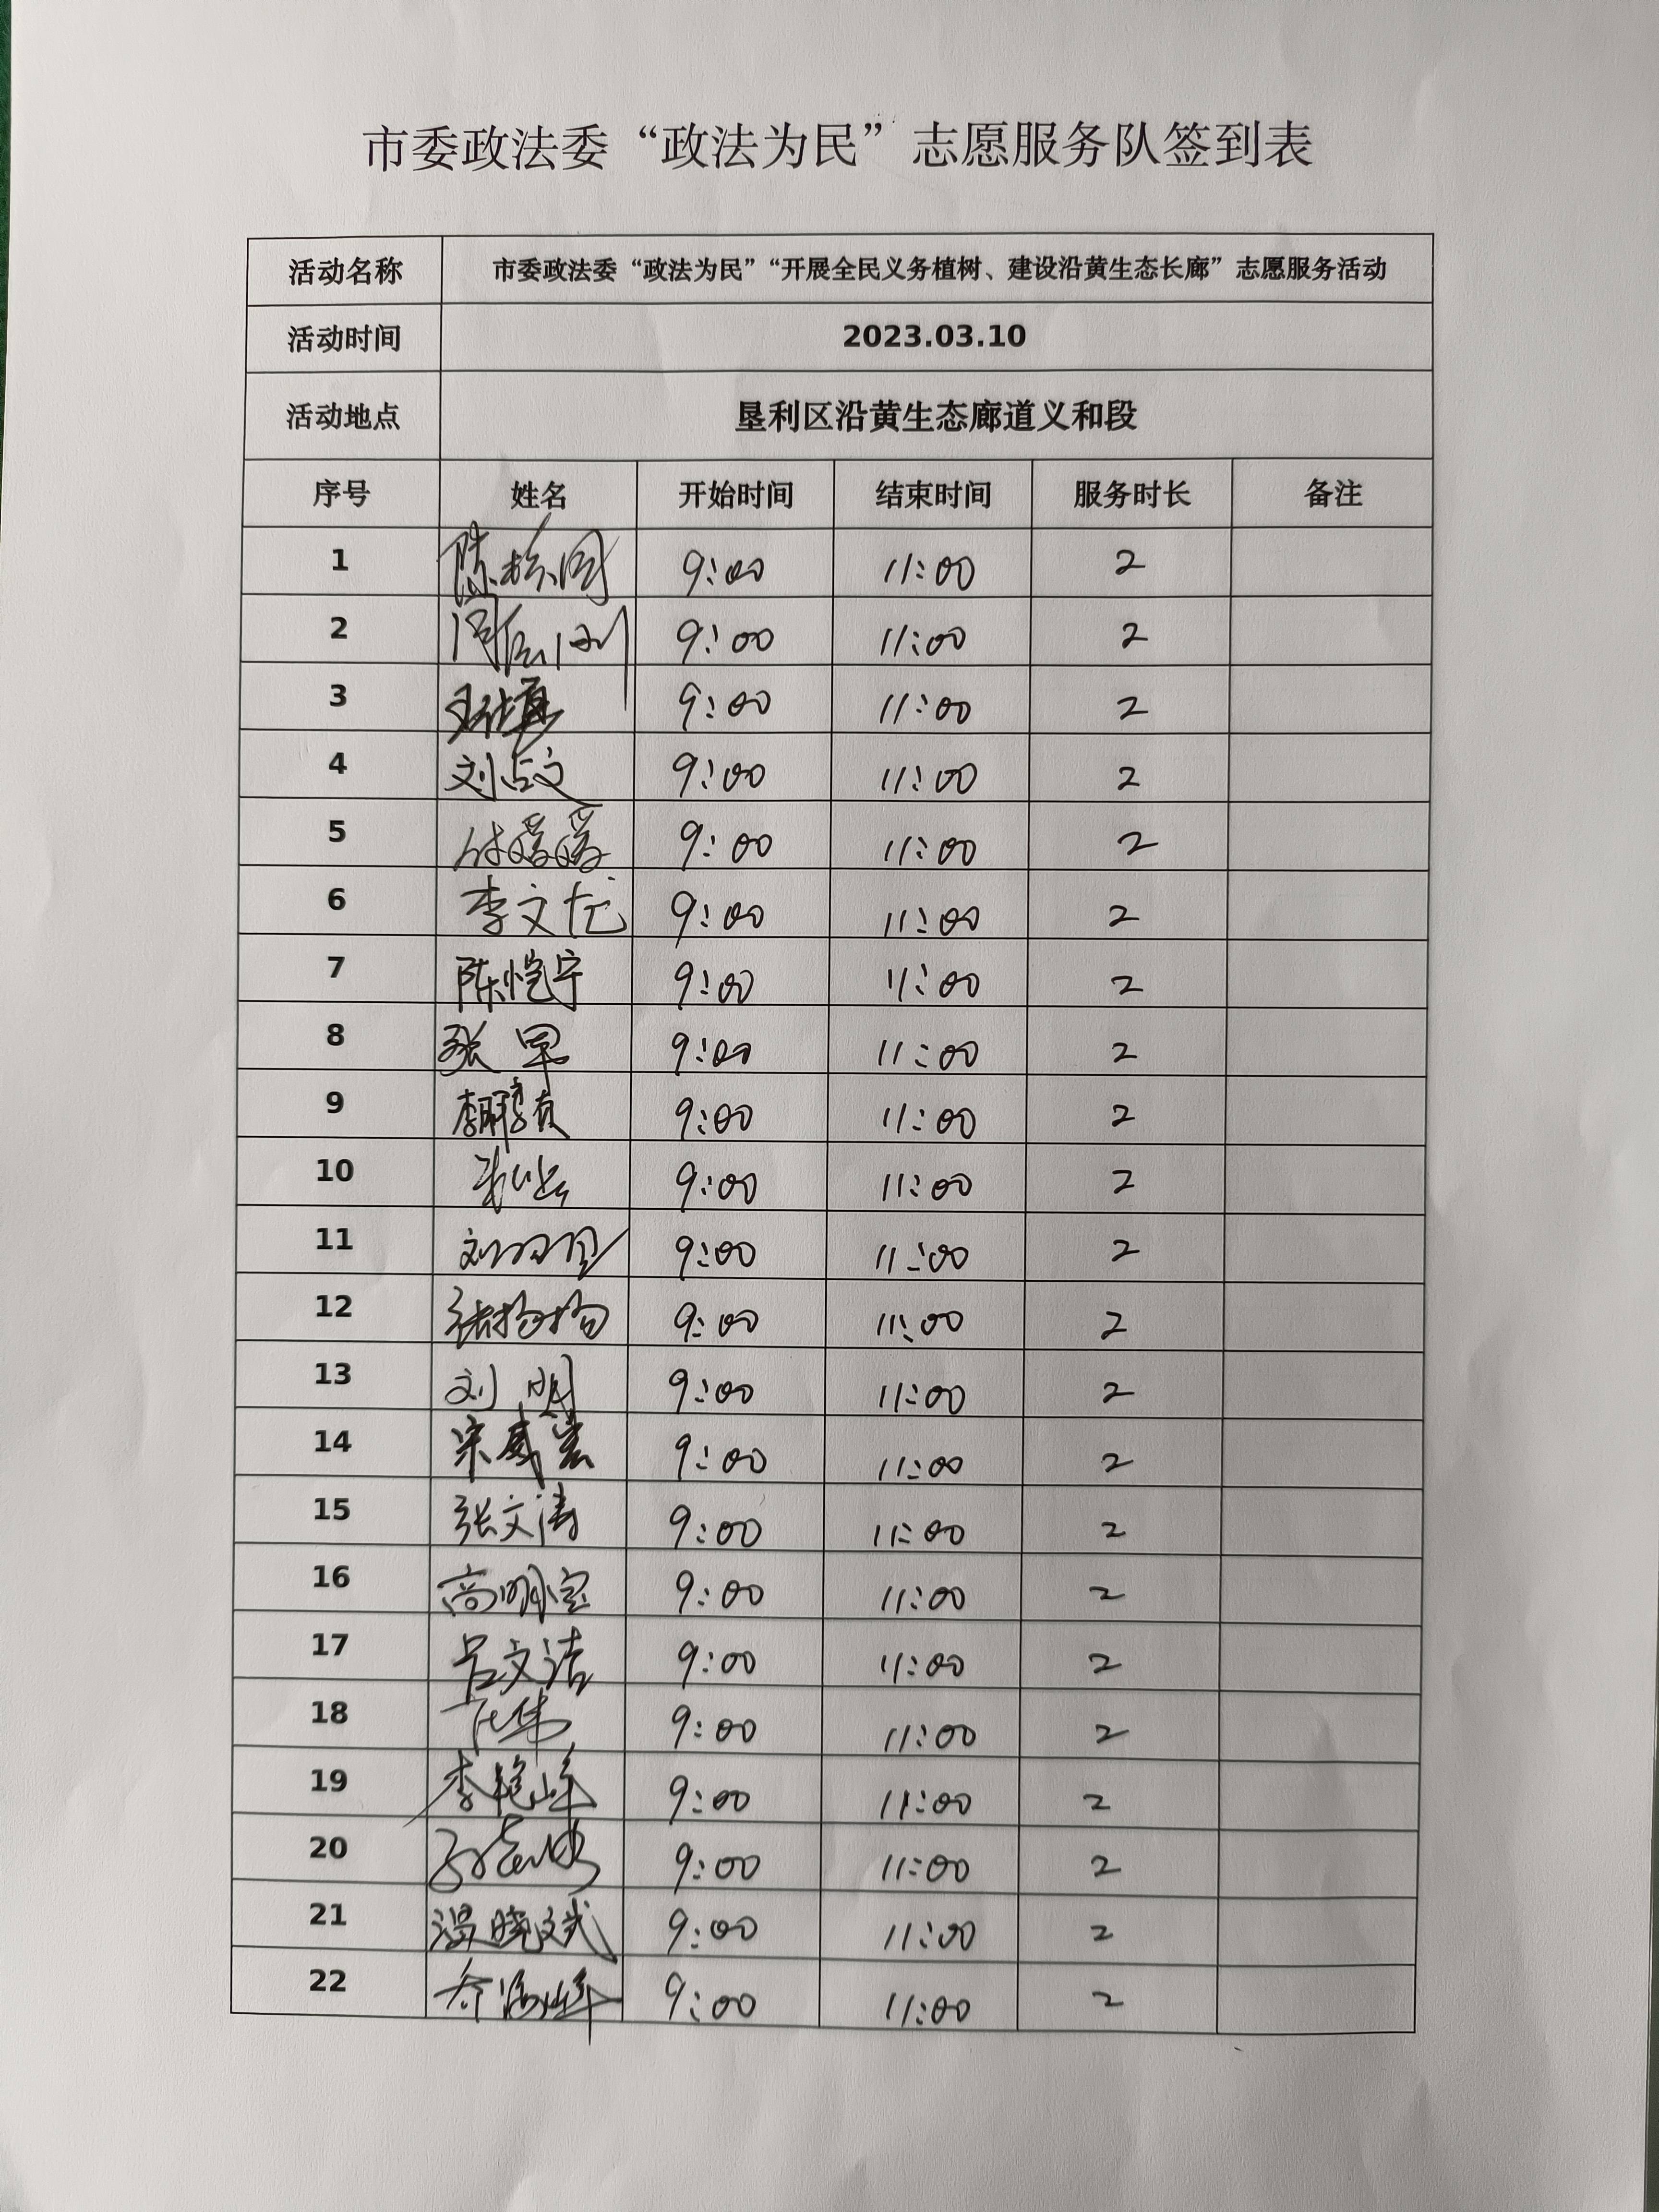 市委政法委“政法为民”志愿服务队签到表
活动名称 市委政法委“政法为民”“开展全民义务植树、建设沿黄生态长廊”志愿服务活动
活动时间 2023.03.10
活动地点 垦利区沿黄生态廊道义和段
序号 姓名 开始时间 结束时间 服务时长 备注
1 9:00 11:00 2
2 9:00 11:00 2
3 9:00 11:00 2
4 刘占文 9:00 11:00 2
5 9:00 11:00 2
6 李文龙 9:00 11:00 2
7 陈恺宁 9:00 11:00 2
8 张军 9:00 11:00 2
9 9:00 11:00 2
10 9:00 11:00 2
11 9:00 11:00 2
12 张扬扬 9:00 11:00 2
13 刘明 9:00 11:00 2
14 9:00 11:00 2
15 张文涛 9:00 11:00 2
16 尚明宝 9:00 11:00 2
17 吕文洁 9:00 11:00 2
18 9:00 11:00 2
19 李艳峰 9:00 11:00 2
20 9:00 11:00 2
21 温晓斌 9:00 11:00 2
22 乔海峰 9:00 11:00 2